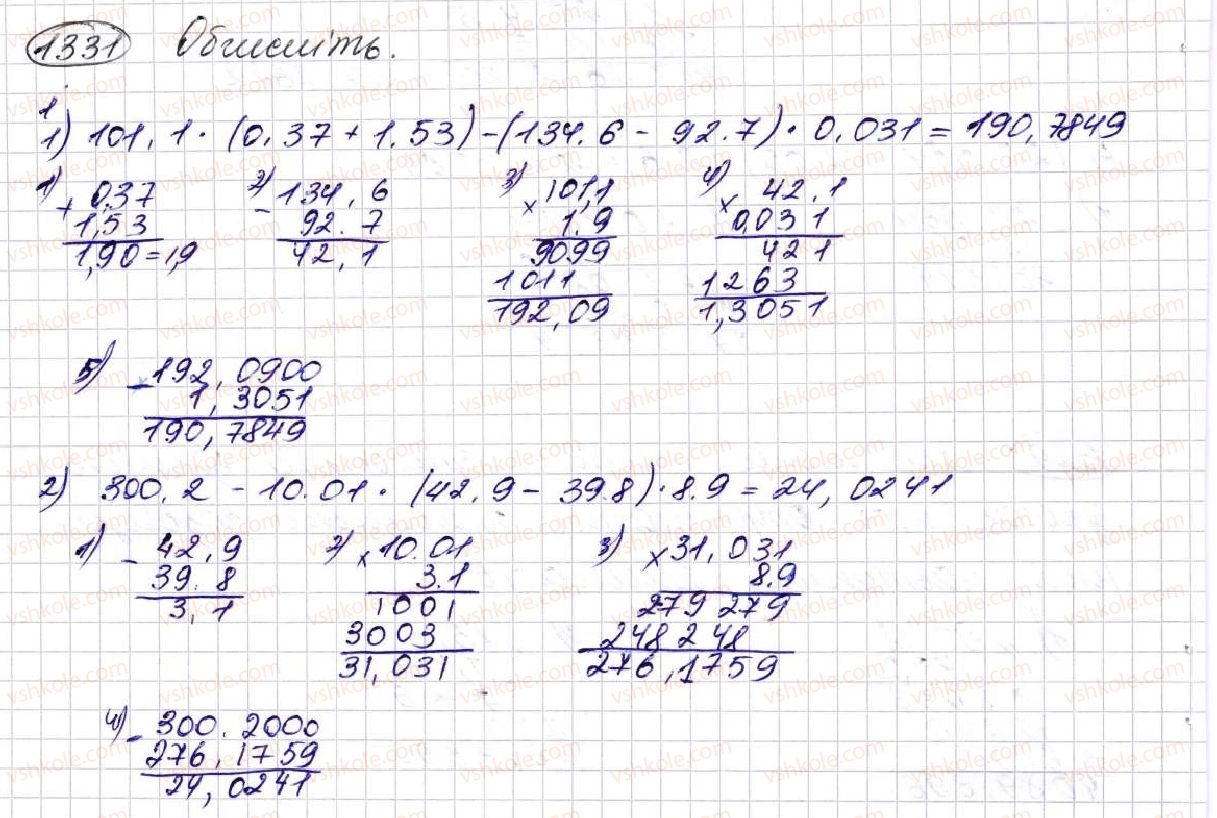 1331 Обчисліть.
1
1) 101,1 · (0,37 + 1,53) - (134.6 - 92.7) · 0,031 = 190,7849
1) + 0,37
1,53
1,90 = 1,9
2) - 134,6
92.7
42,1
3) × 101,1
1.9
9099
1011
192,09
4) × 42,1
0,031
421
1263
1,3051
5) - 192,0900
1,3051
190,7849
2) 300,2 - 10.01 · (42,9 - 39.8) · 8.9 = 24,0241
1) - 42,9
39.8
3,1
2) × 10.01
3.1
1001
3003
31,031
3) × 31,031
8.9
279 279
248 248
276,1759
4) - 300.2000
276,1759
24,0241
vshkole.com